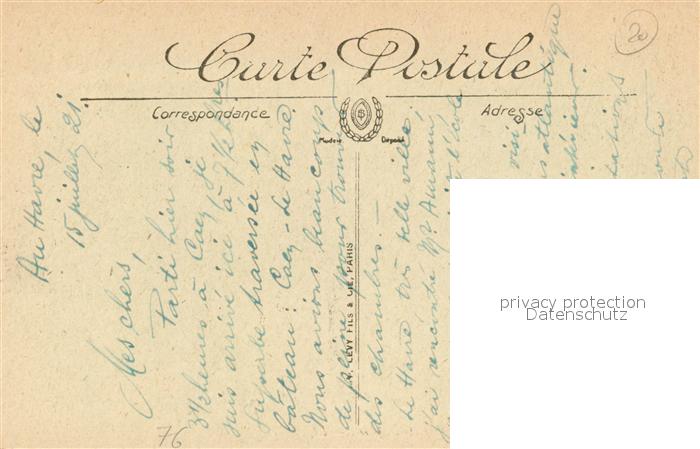 20
Carte Postale
Correspondance
Adresse
Modèle Déposé
LEVY FILS & CIE, PARIS
Au Havre, le
15 juillet 21.
Mes chers,
Parti hier soir
3½ heures à Caen, je
suis arrivé ici à 7½ heures
Superbe traversée en
bateau : Caen - Le Havre.
Nous avions beaucoup
de peine pour trouver
des chambres. -
Le Havre très belle ville
j'ai rencontré Mr
l'école
visi
atlantique
intérieur.
76
privacy protection
Datenschutz